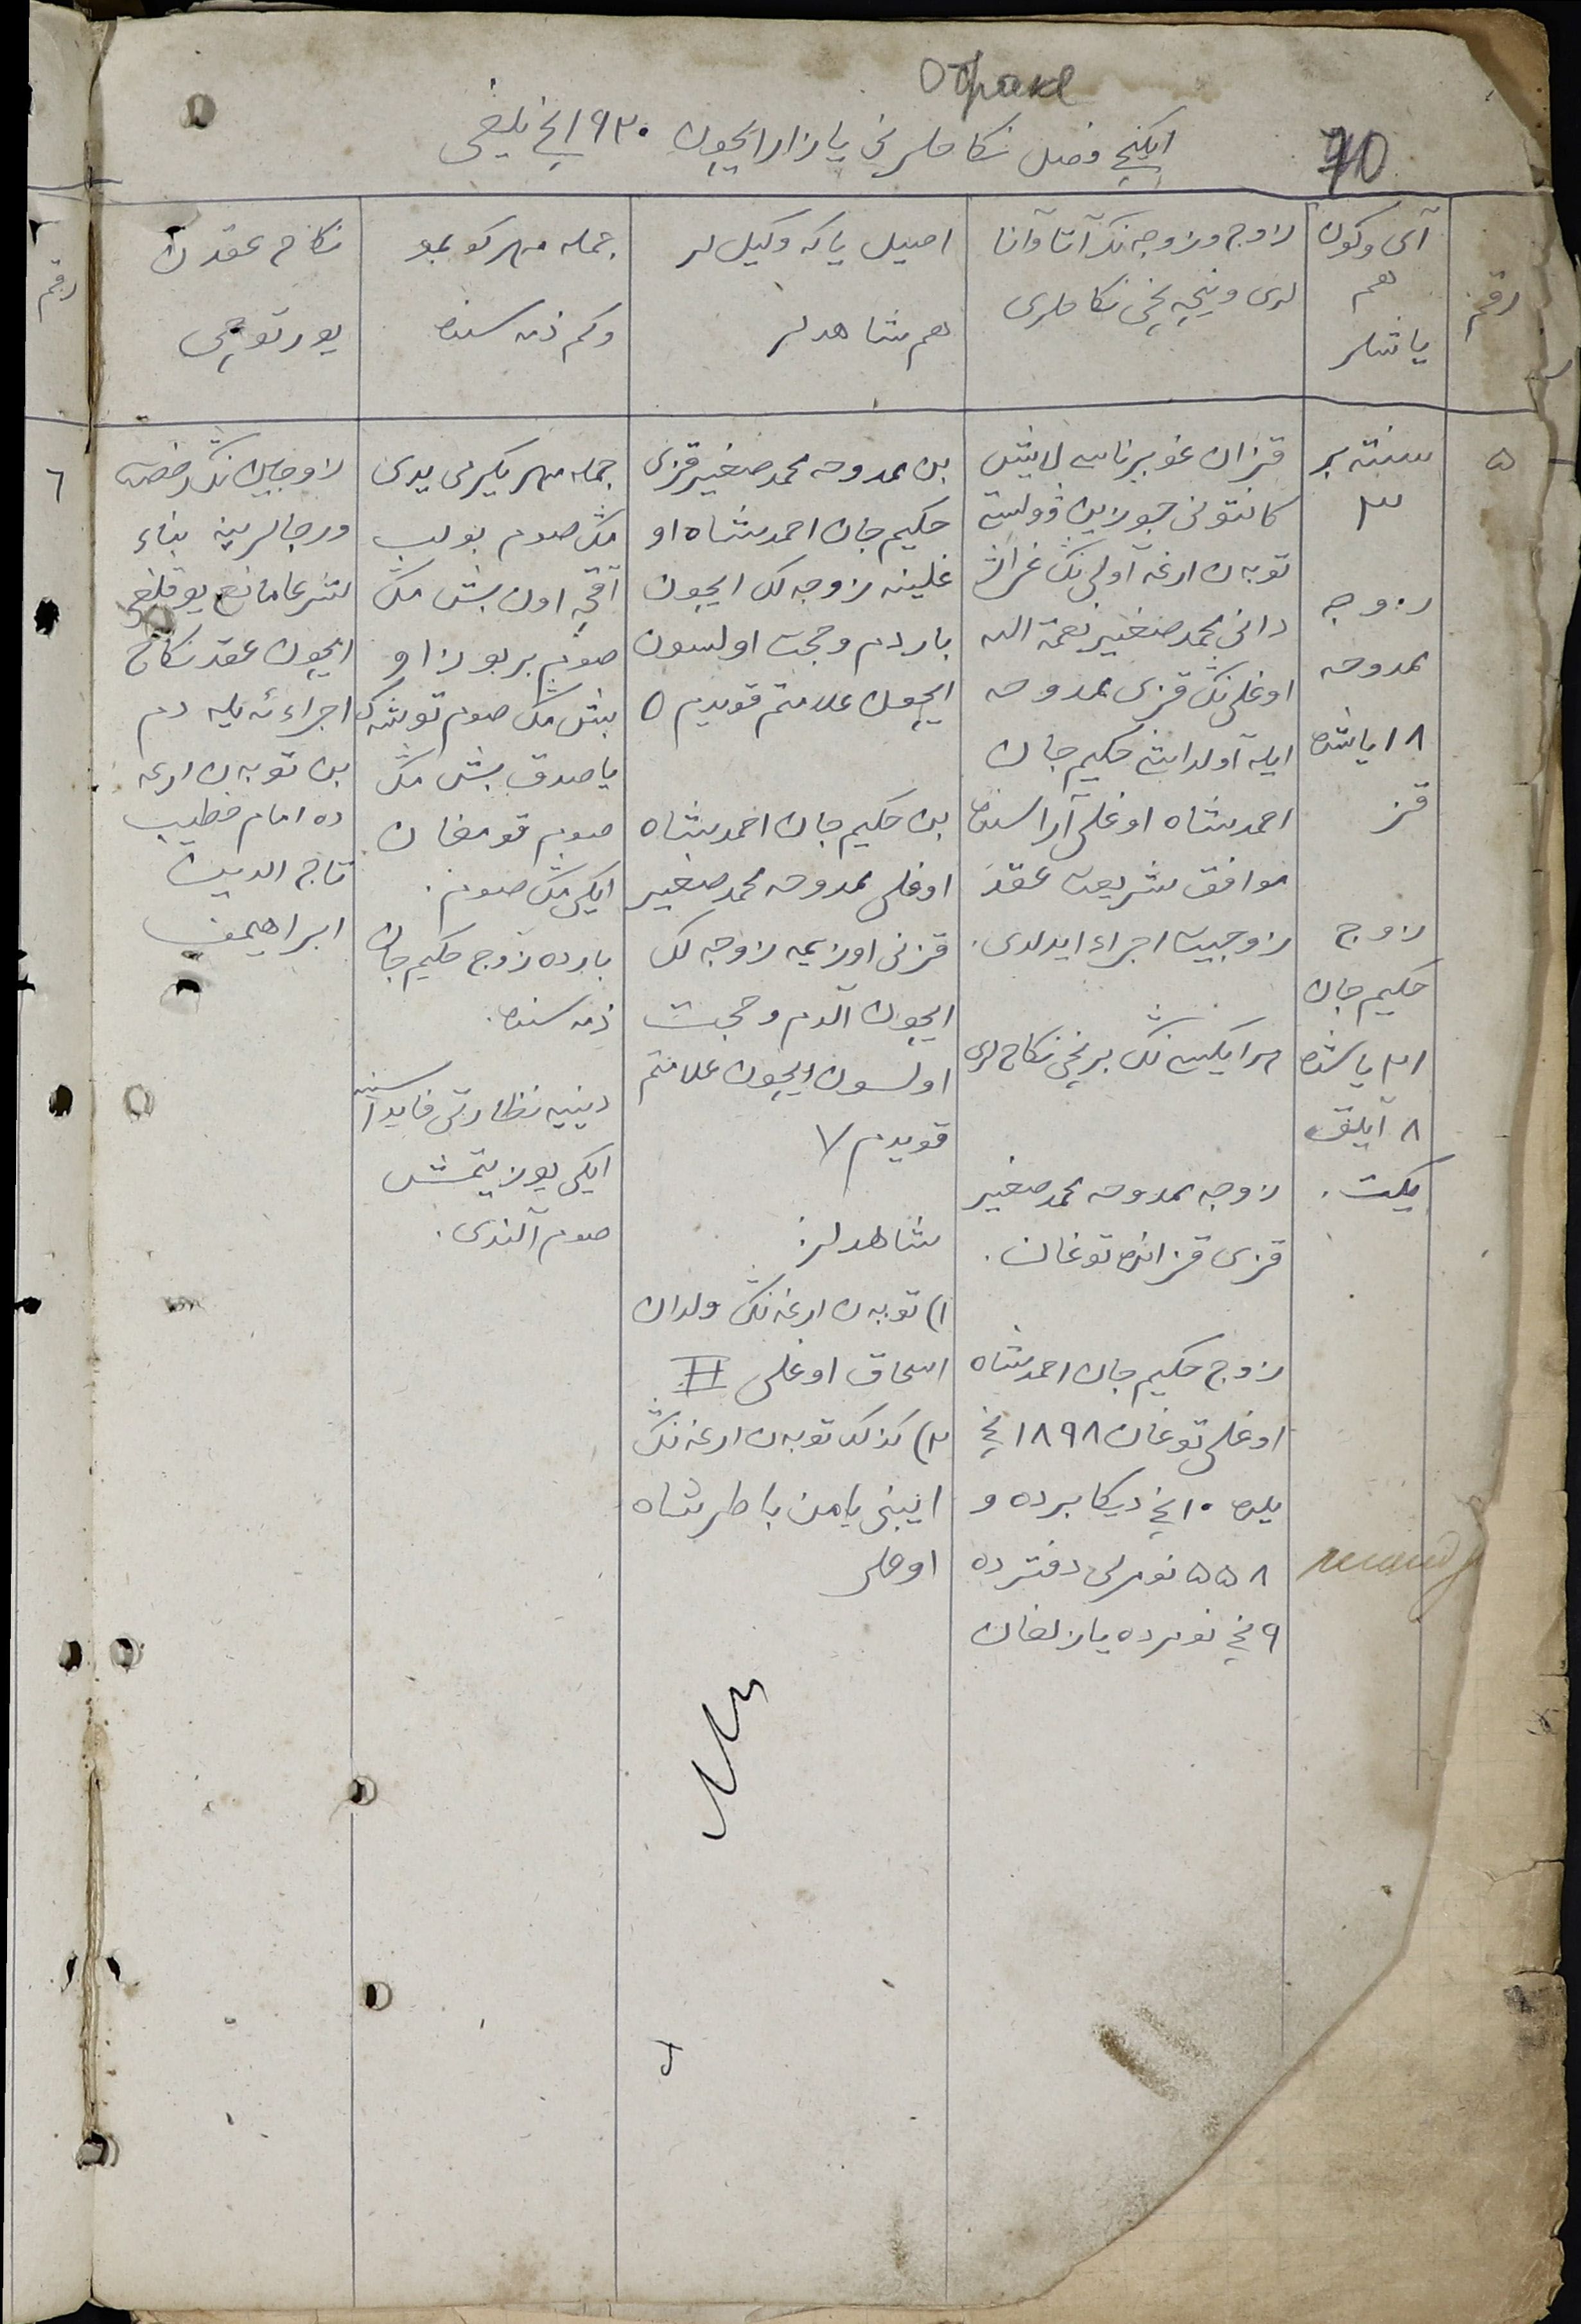 О браке
70
ایکنچی فصل نکاحلرنی یازار ایچون ۱۹۲۰ نچی یلغی
رقم
آی و کون
هم
یاشلر
زوج و زوجه ننک آتا و آنا
لری و نیچه نچی نکاحلری
اصیل یا که وکیل لر
هم شاهدلر
جمله مهر کو بمو
و کم ذمه سنده
نکاح عقدن
یورتوچی
رقم
۵
سنتەبر
۳
زوجه
ممدوحه
۱۸ یاشده
قز
زوج
حکیم جان
۲۱ یاشده
۸ آیلق
یکت .
قزان غوبرناسی لایش
کانتونی چورین ۋولستی
توبه ن ارغه آولی ننک غراژ
دانی محمد صغیر نعمة الله
اوغلی ننک قزی ممدوحه
ایله آولداشی حکیم جان
احمدشاه اوغلی آراسنده
موافق شریعت عقد
زوجیت اجراء ایدلدی .
هر ایکسی ننک برنچی نکاحلری
زوجه ممدوحه محمد صغیر
قزی قزانده توغان .
زوج حکیم جان احمدشاه
اوغلی توغان ۱۸۹۸ نچی
یلده ۱۰ نچی دیکابرده و
۵۵۸ نومرلی دفترده
۹ نچی نومرده یازلغان
بن ممدوحه محمد صغیر قزی
حکیم جان احمدشاه او
غلینه زوجه لک ایچون
باردم و حجت اولسون
ایچون علامتم قویدم ٥
بن حکیم جان احمدشاه
اوغلی ممدوحه محمد صغیر
قزنی اوزیمه زوجه لک
ایچون آلدم و حجت
اولسون ایچون علامتم
قویدم ٧
شاهدلر:
۱) توبه ن ارغه ننک ولدان
اسحاق اوغلی II
۲) کذلک توبه ن ارغه ننک
ابنی یامن باطرشاه
اوغلی
جمله مهر یکرمی یدی
منک صوم بولب
آقچه اون بش منک
صوم بر بوزاو
بش منک صوم توشک
یاصدق بش منک
صوم قومغان
ایکی منک صوم .
بارده زوج حکیم جان
ذمه سنده .
دینیه نظارتی فایداسینه
ایکی یوز یتمش
صوم آلندی .
زوجین ننک رخصت
و رجالرینه بناء
شرعا مانع یوقلغی
ایچون عقد نکاح
اجراء ئه یله دم
بن توبه ن ارغه
ده امام خطیب
تاج الدین
ابراهیموف
٦